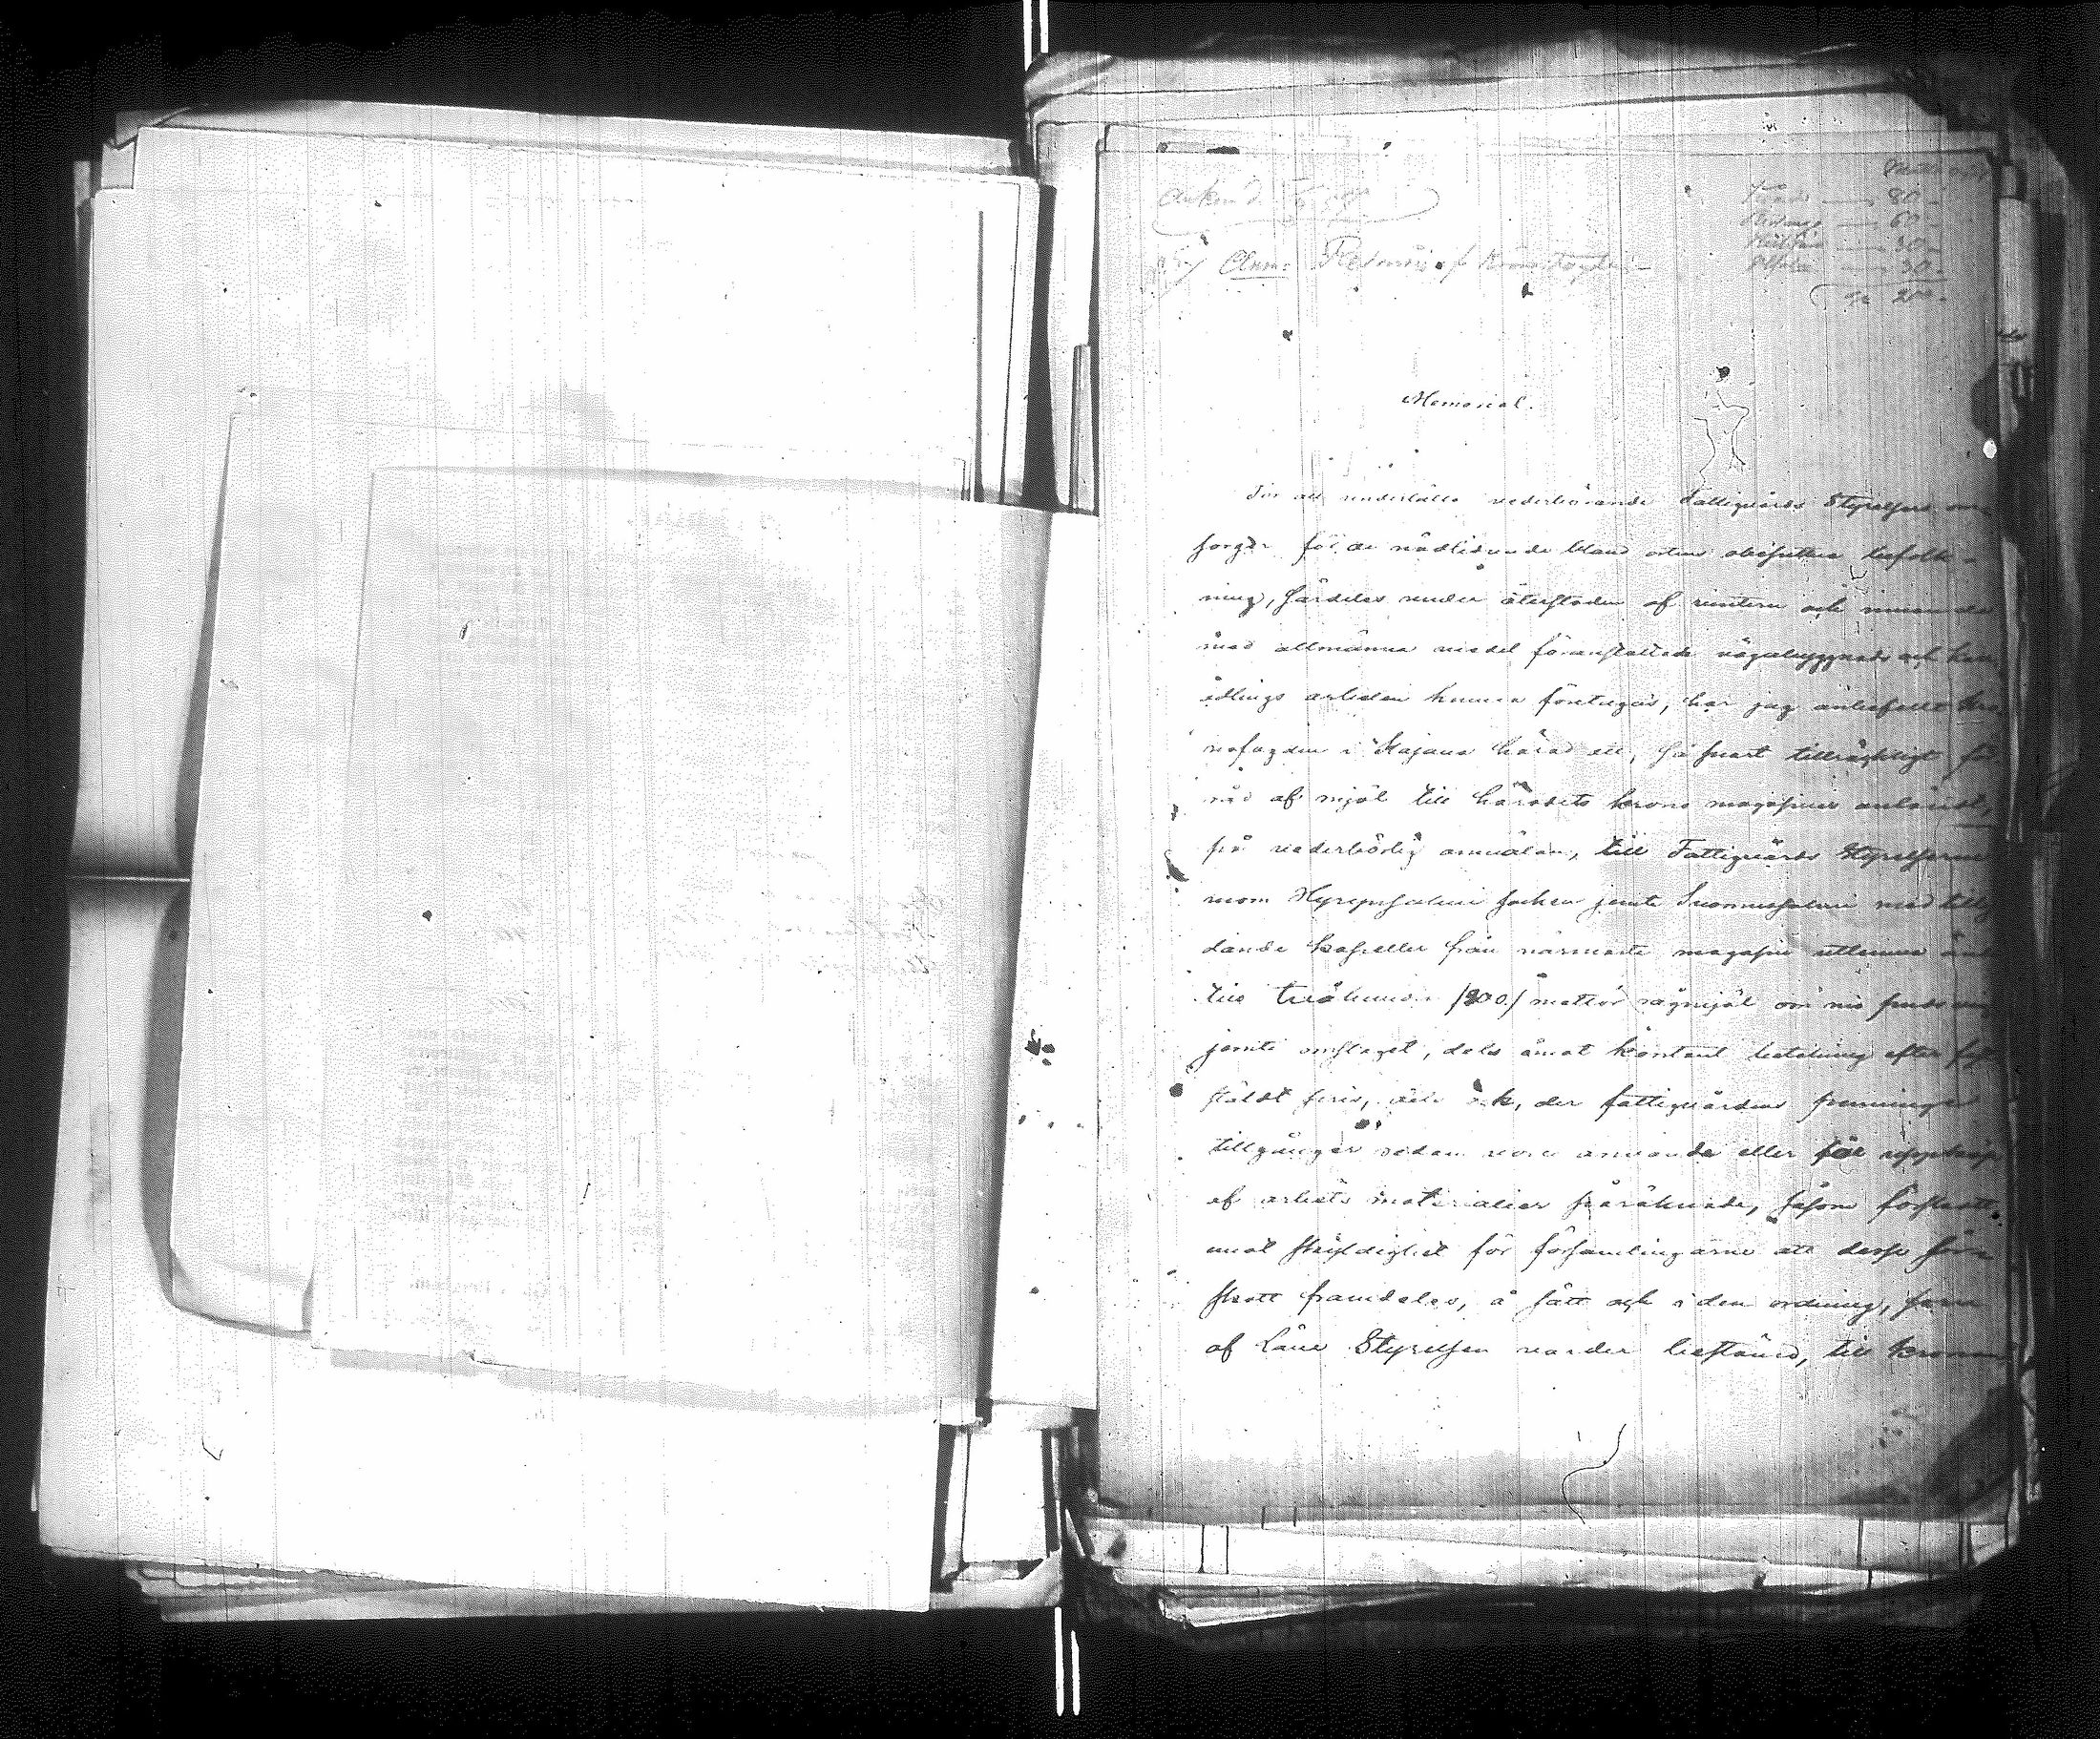 80
60
30
30
200
Memorial.
För att underlätta vederbörande Fattigvårds Styrelsers om
sorger för de nödlidande bland ortens obesuttna befolk-
ning, särdeles under återstoden af vintern och innan de
med allmänna medel föranstaltade vägabyggnads och
odlings arbeten kunna företagas, har jag anbefallt Kro
nofogden i Kajana härad att, så snart tillräckligt för
råd af mjöl till häradets krono magasiner anländt,
på vederbörlig anmälan, till Fattigvårds Styrelserna
inom Hyrynsalmi socken jemte Suomussalmi med tilly
dande kapeller från närmaste magasin utlemna än
till tvåhundra /200/ mattor rågmjöl om nio puds
jemte omslaget, dels emot kontant betalning efter fast
stäldt pris, och, der fattigvårdens penninge
tillgångar redan voro använda eller för uppköp
af arbets materialier påräknade, såsom förskott
emot skyldighet för församlingarne att desse för
skott framdeles, å sätt och i den ordning, som
af Läne Styrelsen varder bestämd, till Kronan